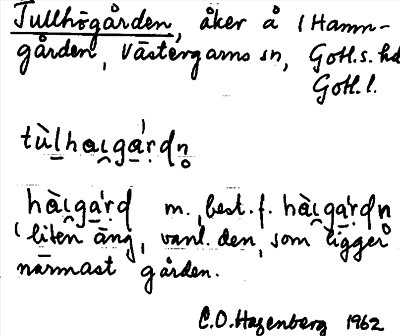 Tullhögården, åker å 1 Hamn-
gården, Västergarns sn, Gotl. s. hd
Gotl. l.
tùlhaı̯gá̱rdn̥
hàı̯gá̱rd m., best. f. hàı̯gá̱rdn̥
'liten äng, vanl. den, som ligger
närmast gården.
C. O. Hagenberg 1962